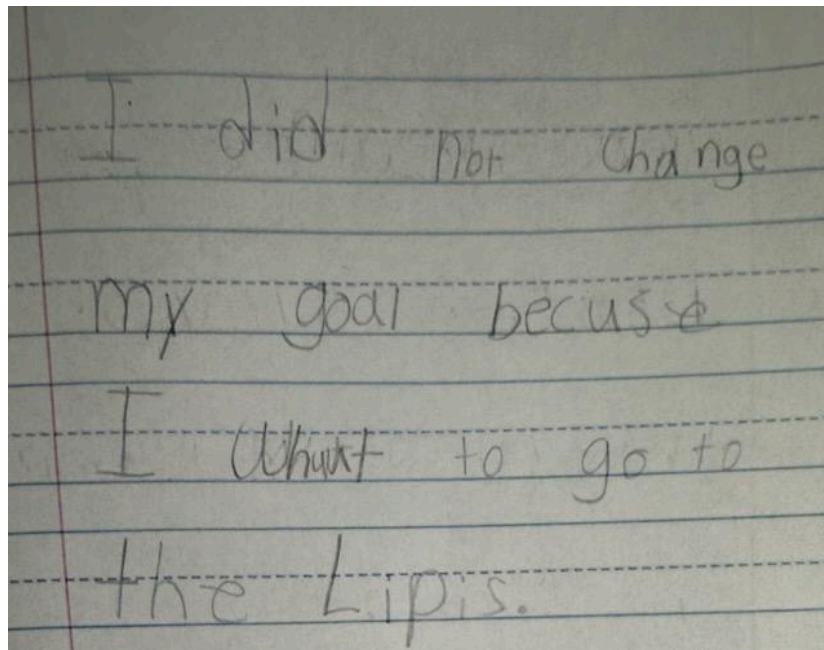 I did not change
my goal becuse
I Whunt to go to
the Lipis.